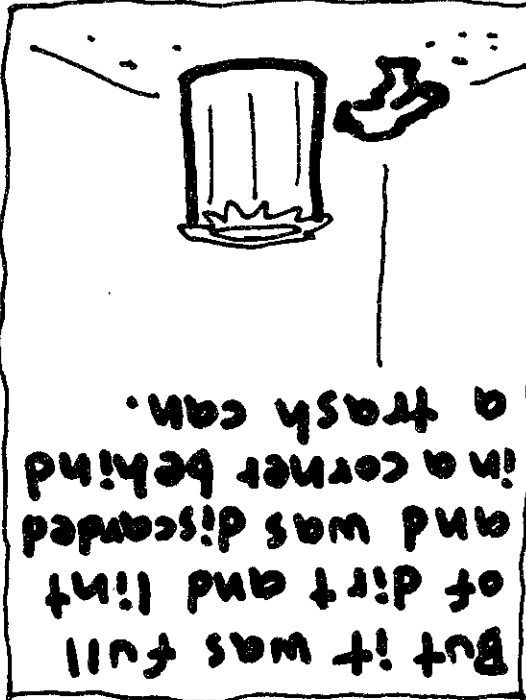 But it was full
of dirt and lint
and was discarded
in a corner behind
a trash can.